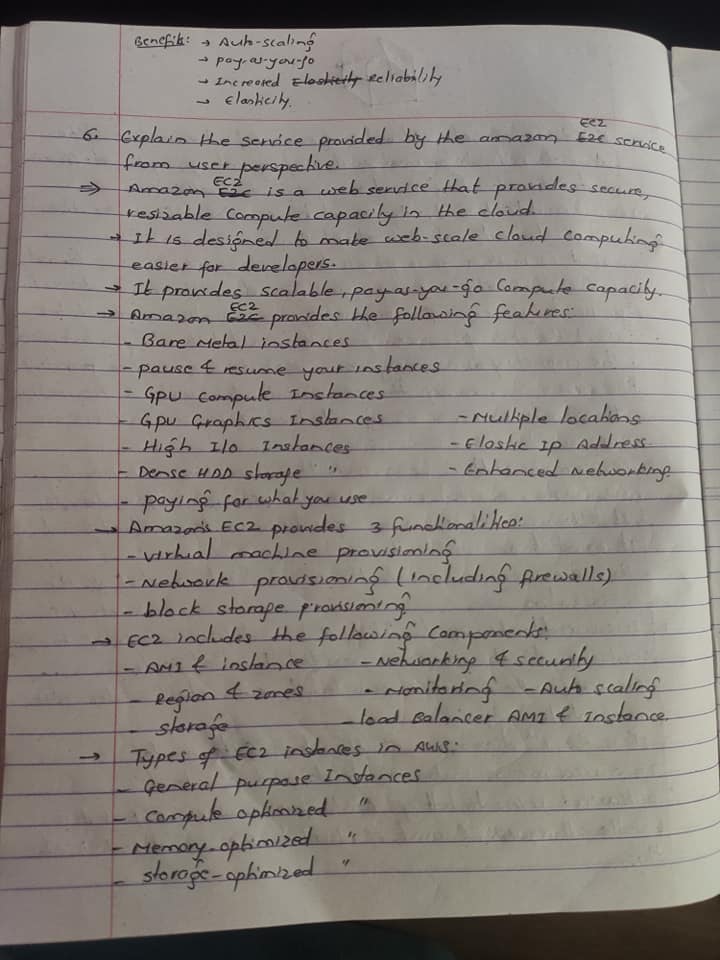 Benefits: → Auto-scaling
→ pay-as-you-go
→ Increased Elasticity Reliability
→ Elasticity.
6. Explain the service provided by the amazon EC2 E2C service
from user perspective.
⇒ Amazon EC2 E2C is a web service that provides secure,
resizable compute capacity in the cloud.
→ It is designed to make web-scale cloud computing
easier for developers.
→ It provides scalable, pay-as-you-go compute capacity.
→ Amazon EC2 E2C provides the following features:
- Bare Metal instances
- pause & resume your instances
- GPU Compute Instances
- GPU Graphics Instances - Multiple locations
- High I/O Instances - Elastic Ip Address
- Dense HDD storage " - Enhanced Networking.
- paying for what you use
→ Amazon's EC2 provides 3 functionalities:
- virtual machine provisioning
- Network provisioning (including firewalls)
- block storage provisioning
→ EC2 includes the following components:
- AMI & instance - Networking & security
- Region & zones - Monitoring - Auto scaling
- storage - load Balancer AMI & Instance.
→ Types of EC2 instances in AWS:
- General purpose Instances
- Compute optimized "
- Memory-optimized "
- storage-optimized "